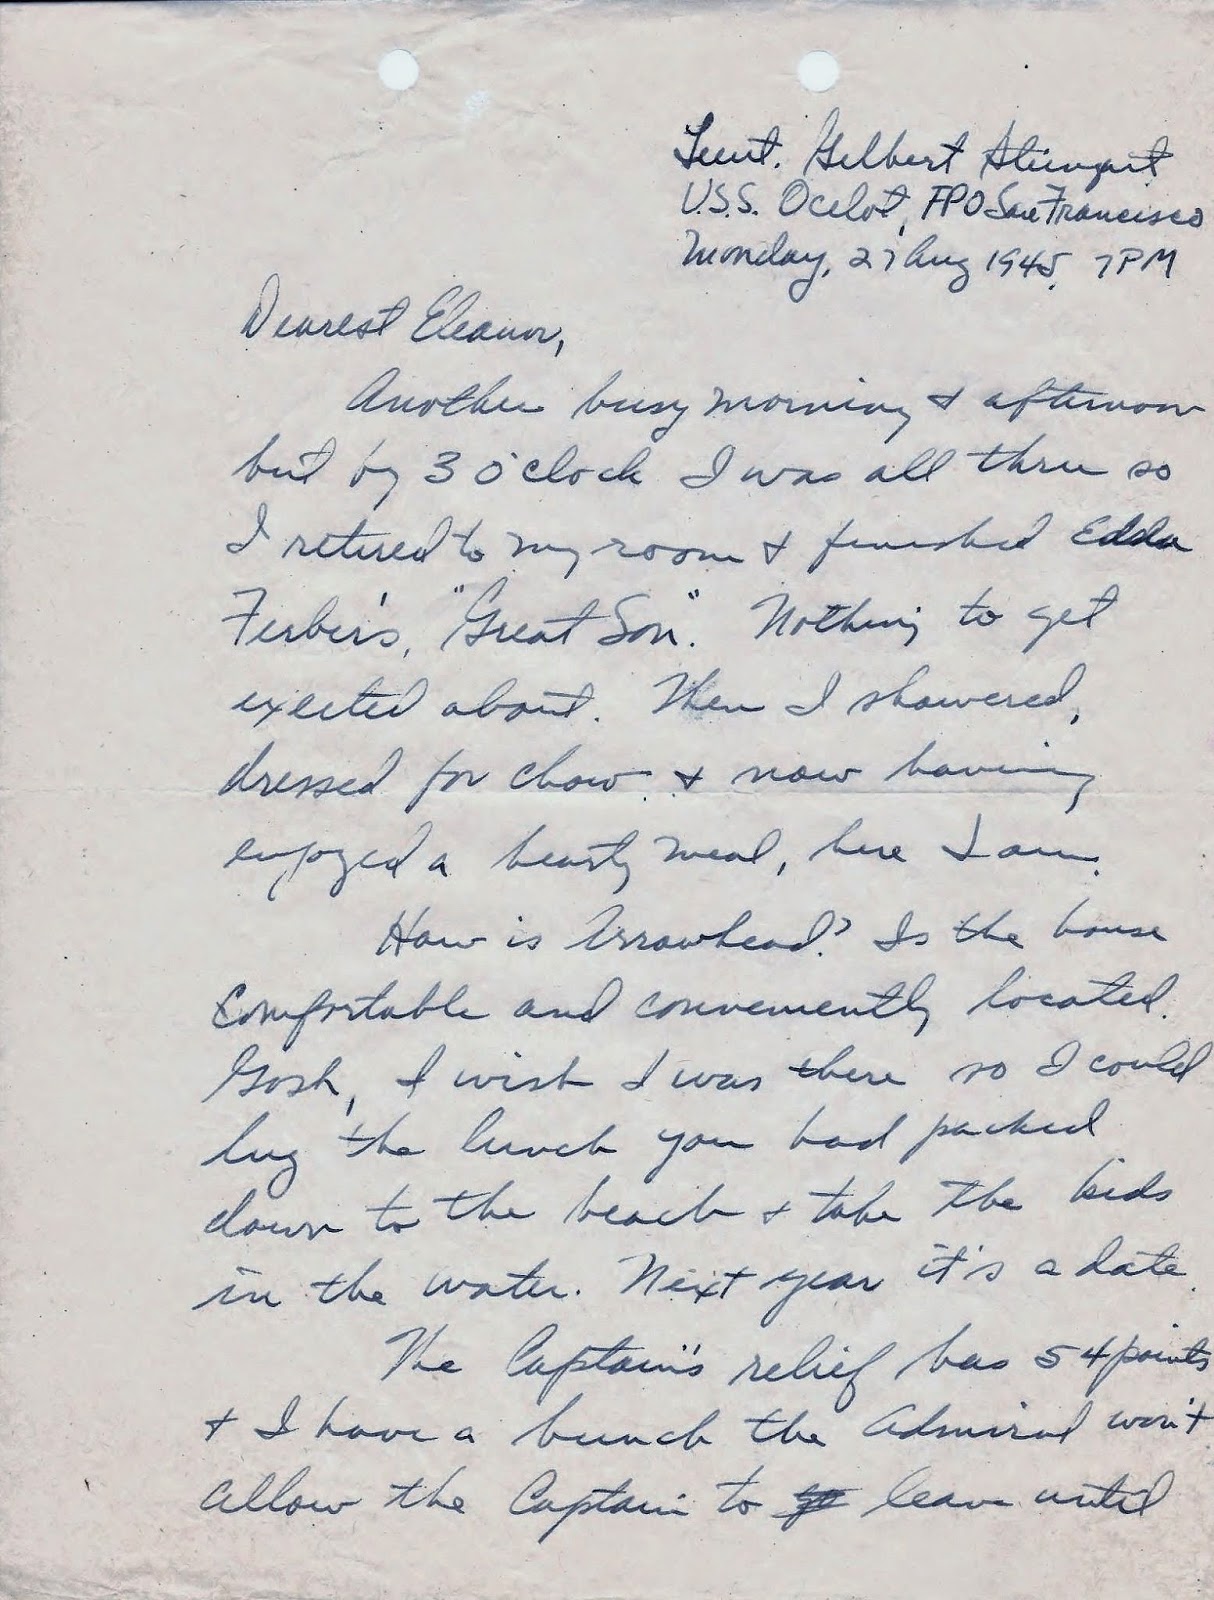 Lieut. Gilbert
U.S.S. Ocelot, FPO San Francisco
Monday, 27 Aug 1945, 7PM
Dearest Eleanor,
Another busy morning & afternoon
but by 3 o'clock I was all thru so
I retired to my room & finished Edda
Ferber's, "Great Son". Nothing to get
excited about. Then I showered,
dressed for chow & now having
enjoyed a hearty meal, here I am.
How is Arrowhead? Is the house
comfortable and conveniently located.
Gosh, I wish I was there so I could
lug the lunch you had packed
down to the beach & take the kids
in the water. Next year it's a date.
The Captain's relief has 54 points
& I have a hunch the Admiral won't
allow the Captain to leave until